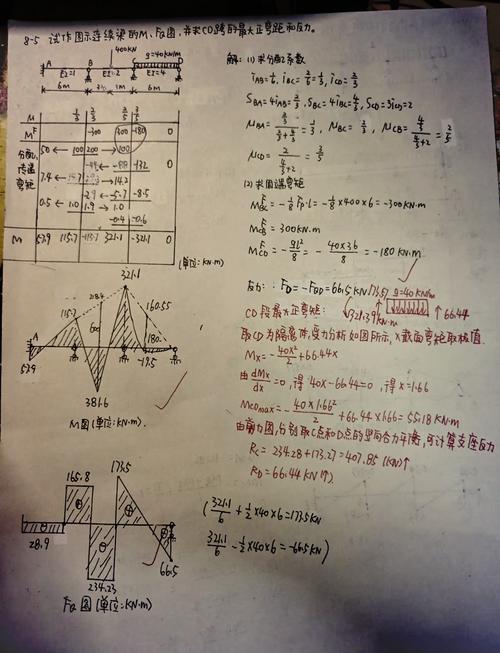 8-5 试作图示连续梁的M、FQ图,并求CD跨的最大正弯矩和反力。
400KN q=40KN/m
A B C D
EI=1 EI=2 EI=4
6m 3m 3m 6m
M 1/3 2/3 2/5 3/5
M^F -300 300 -180 0
分配、传递弯矩
50 ← 100 200 → 100
-132 0
7.4 ← 14.7 → 14.2
-5.7 -8.5
0.5 ← 1.0 1.9 → 1.0
-0.4 -0.6
M 57.9 115.7 -115.7 321.1 -321.1 0
(单位:KN·m)
321.1
115.7 218.4 160.55
600 180
A
57.9 -19.5
381.6
M图(单位:KN·m)
173.5
165.8
28.9 66.5
234.23
FQ图(单位:KN·m)
解: (1) 求分配系数
iAB=1/6, iBC=2/6=1/3, iCD=2/3
SBA=4iAB=2/3, SBC=4iBC=4/3, SCD=3iCD=2
μBA=(2/3)/(2/3+4/3)=1/3, μBC=2/3, μCB=(4/3)/(4/3+2)=2/5
μCD=2/(4/3+2)=3/5
(2) 求固端弯矩
M^F BC=-1/8 Fp·l=-1/8×400×6=-300KN·m
M^F CB=300KN·m
M^F CD=-ql²/8=-40×36/8=-180KN·m
反力: FD=-FQD=66.5KN 173.67 q=40KN/m
321.39KN·m 66.44
CD段最大正弯矩:
取CD为隔离体,受力分析如图所示,X截面弯矩取极值.
Mx=-40X²/2+66.44X
由dMx/dx=0,得40X-66.44=0,得X=1.66
MCDmax=-40×1.66²/2+66.44×1.66=55.18KN·m
由剪力图,分别取C点和D点的竖向合力平衡,可计算支座反力
RC=234.28+173.27=407.85(KN)↑
RD=66.44KN(↑)
(321.1/6+1/2×40×6=173.5KN
321.1/6-1/2×40×6=-66.5KN)